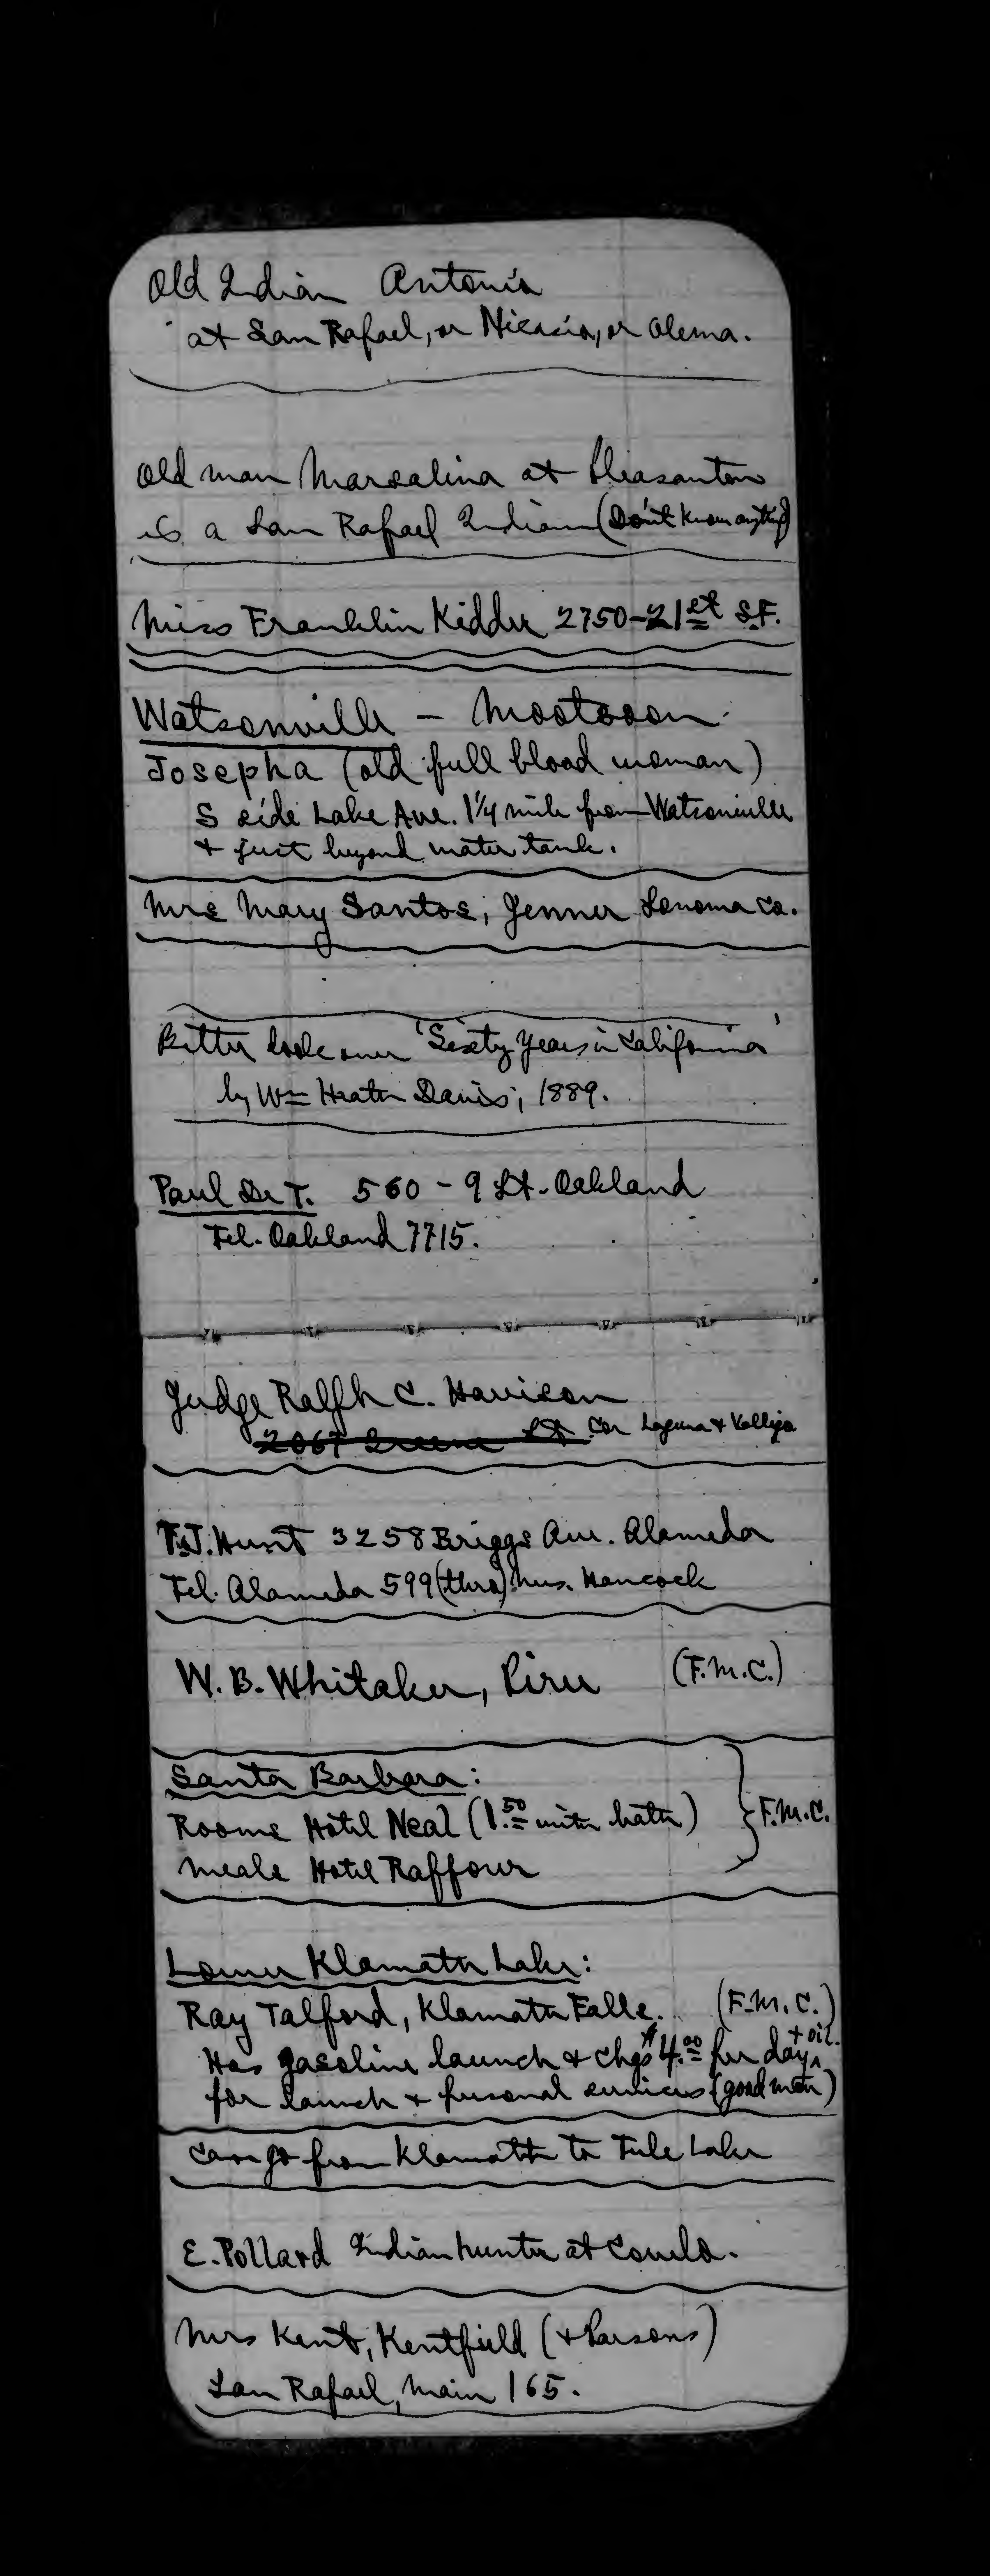 Old Indian Antonia
at San Rafael, or Nicasio, or Olema.
Old man Marsalina at Pleasanton
is a San Rafael Indian (Don't know anything)
Miss Franklin Kidder 2750-21st S.F.
Watsonville - Mootsoon
Josepha (old full blood woman)
S side Lake Ave. 1¼ mile from Watsonville
+ just beyond water tank.
Mrs Mary Santos, Jenner Sonoma Co.
Better look over 'Sixty Years in California'
by Wm Heath Davis; 1889.
Paul De T. 560 - 9 St. Oakland
Tel. Oakland 7715.
Judge Ralph C. Harrison
2067 Green St Cor Laguna + Vallejo
T.J. Hunt 3258 Briggs Ave. Alameda
Tel. Alameda 599 (thro) Mrs. Hancock
W. B. Whitaker, Piru (F.M.C.)
Santa Barbara:
Rooms Hotel Neal (1.50 with bath) } F.M.C.
Meals Hotel Raffour
Lower Klamath Lake:
Ray Talford, Klamath Falls. (F.M.C.)
Has gasoline launch + chgs $4.00 per day + oil.
for launch + personal services (good man)
Can go from Klamath to Tule Lake
E. Pollard Indian hunter at Covelo.
Mrs Kent, Kentfield (+ Parsons)
San Rafael, Main 165.